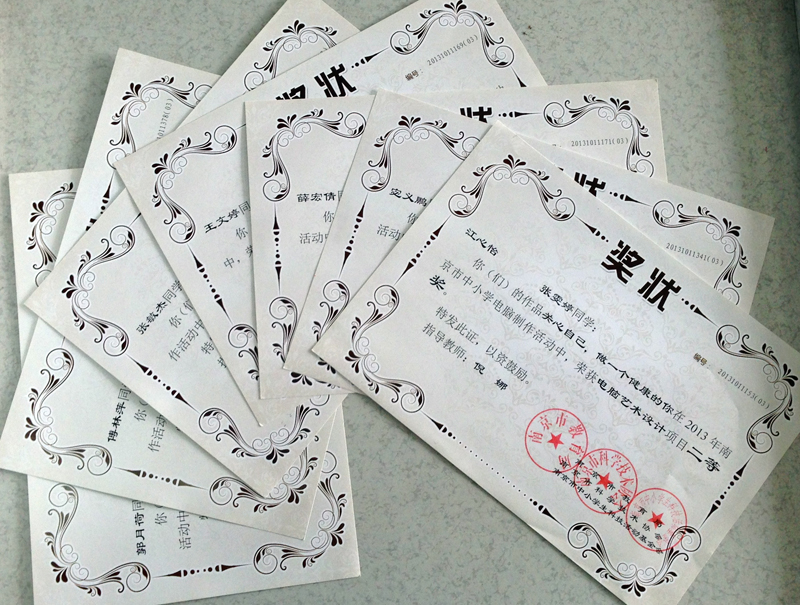 奖状
编号：20131011169(03)
王文婷同
你
中，
011378(03)
奖状
20131011171(03)
薛宏倩同
你
活动中
20131011341(03)
你
活动中
张敏杰同学
你（们
作活动中
傅林萍同
你
作活动中
郭月荷同
你
活动中
奖状
编号：20131011153(03)
江心怡
张雯婷同学：
你（们）的作品关心自己，做一个健康的你在2013年南
京市中小学电脑制作活动中，荣获电脑艺术设计项目二等
奖。
特发此证，以资鼓励。
指导教师：倪 娜
南京市教育局
南京市科学技术协会